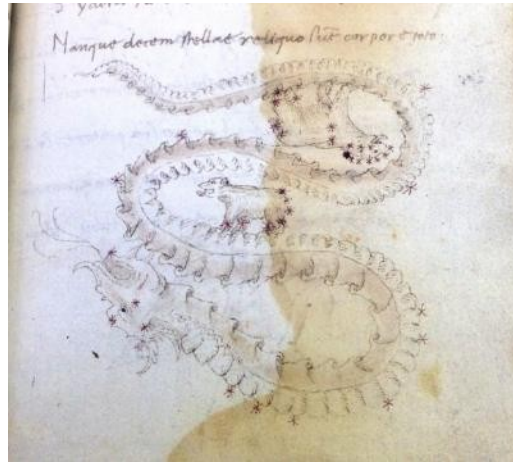 Nanque decem stellae reliquo sūt corpore toto.